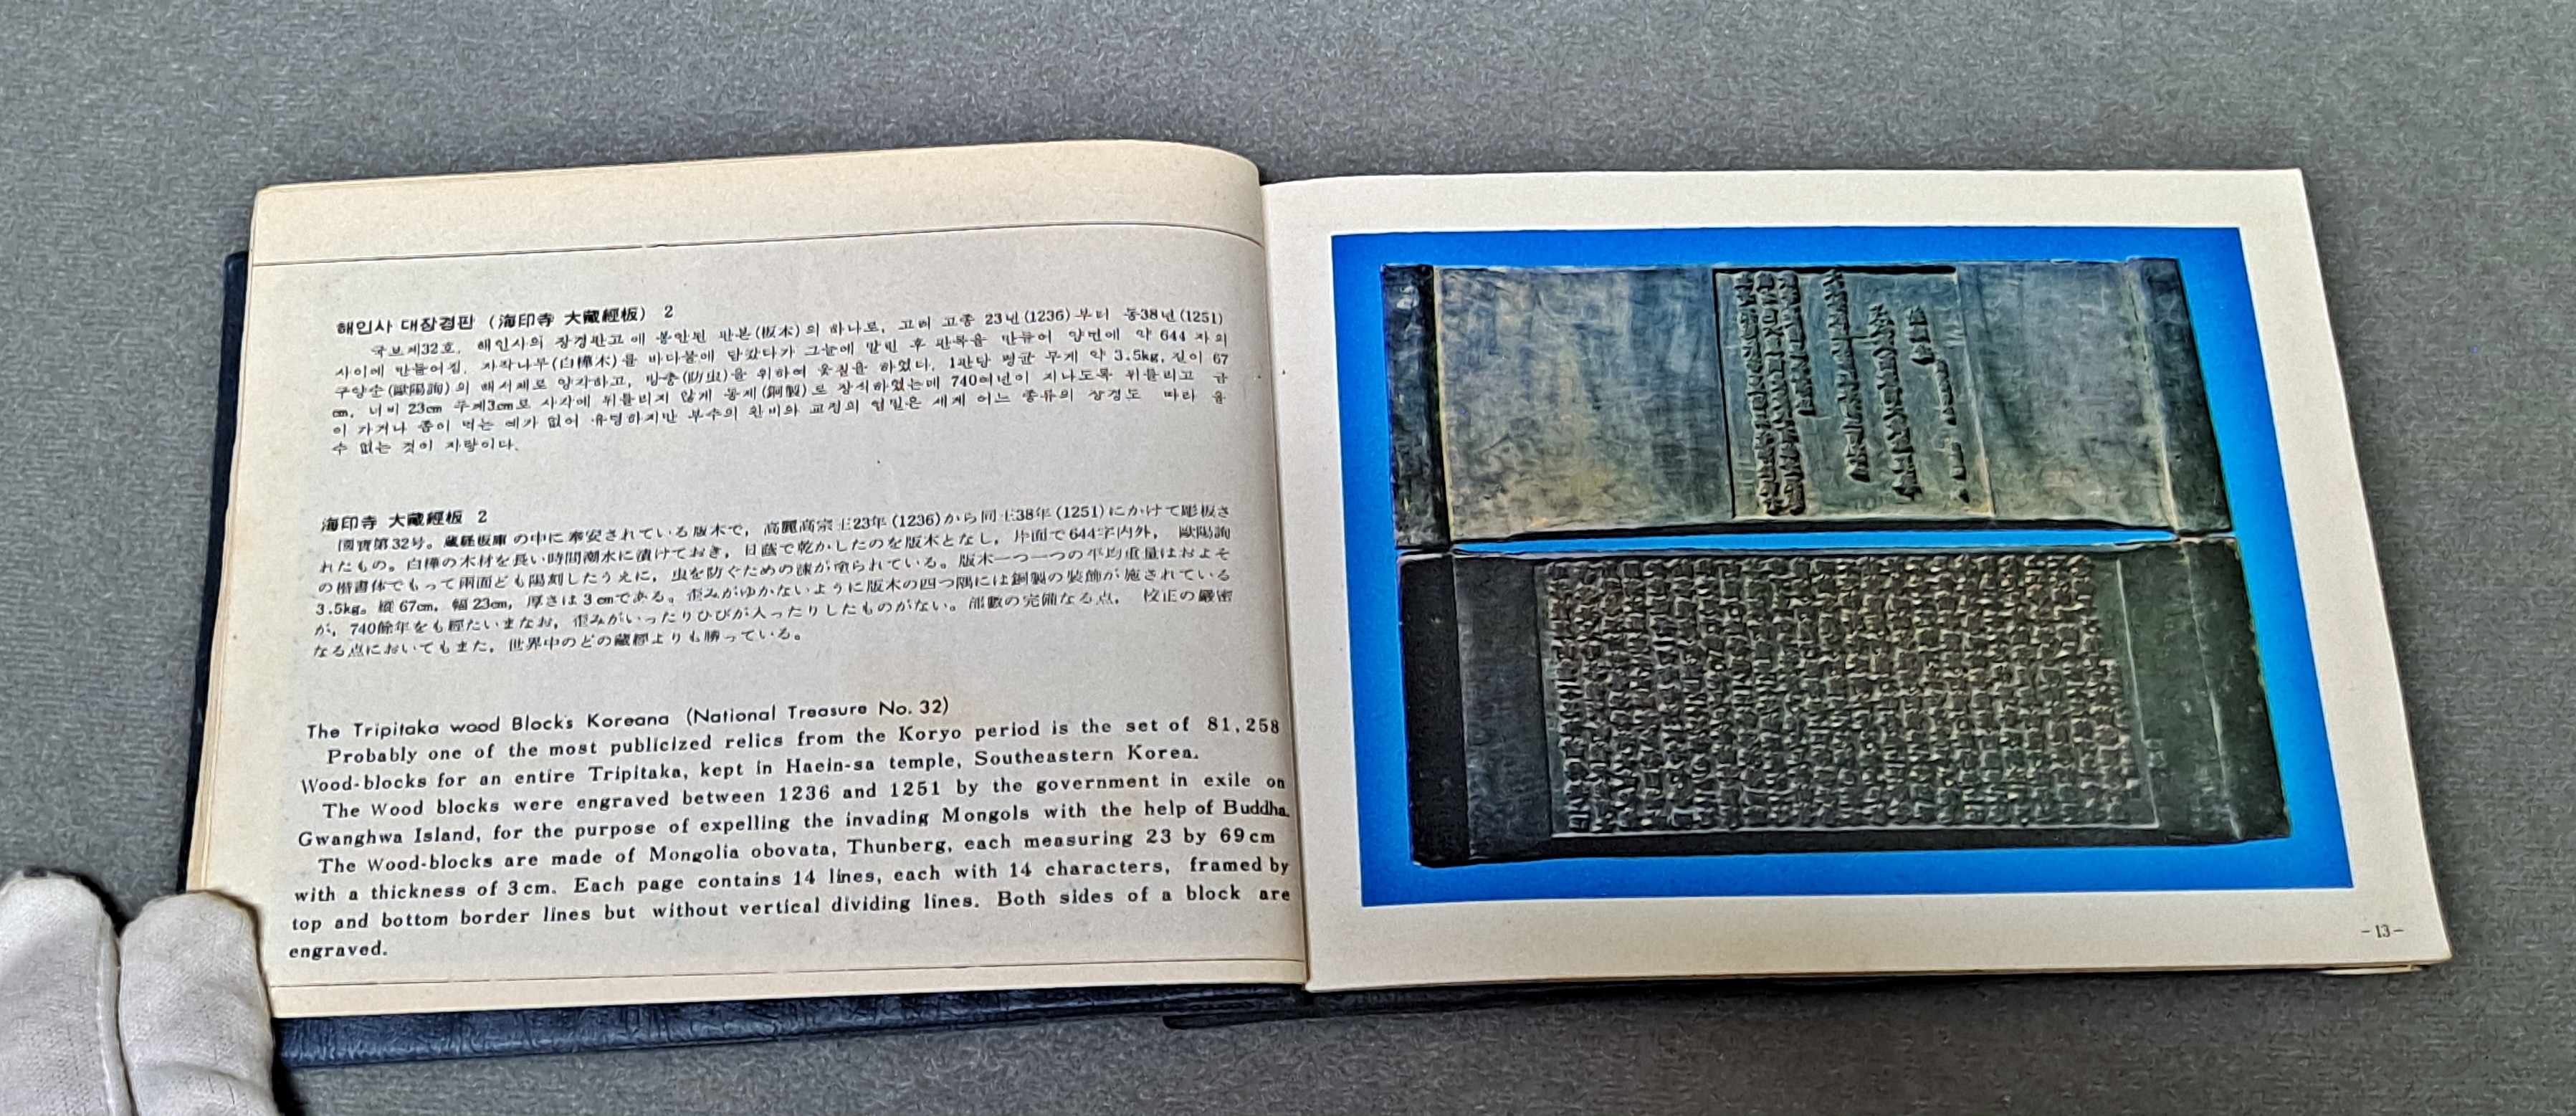 해인사 대장경판 (海印寺 大藏經板) 2
국보제32호. 해인사의 장경판고에 봉안된 판본(板木)의 하나로, 고려 고종 23년(1236)부터 동38년(1251)
사이에 만들어짐. 자작나무(白樺木)를 바다물에 담갔다가 그늘에 말린 후 판목을 만들어 양면에 약 644 자의
구양순(歐陽詢)의 해서체로 양각하고, 방충(防虫)을 위하여 옻칠을 하였다. 1판당 평균 무게 약 3.5kg, 길이 67
cm, 너비 23cm 두께3cm로 사각에 뒤틀리지 않게 동제(銅製)로 장식하였는데 740여년이 지나도록 뒤틀리고 금
이 가거나 좀이 먹는 예가 없어 유명하지만 부수의 완비와 교정의 엄밀은 세계 어느 종류의 장경도 따라 올
수 없는 것이 자랑이다.
海印寺 大藏經板 2
國寶第32号。藏経板庫の中に奉安されている版木で，高麗高宗王23年(1236)から同王38年(1251)にかけて彫板さ
れたもの。白樺の木材を長い時間潮水に漬けておき，日蔭で乾かしたのを版木となし，片面で644字内外， 歐陽詢
の楷書体でもって兩面とも陽刻したうえに，虫を防ぐための漆が塗られている。版木一つ一つの平均重量はおよそ
3.5kg。縦67cm，幅23cm，厚さは3cmである。歪みがゆかないように版木の四つ隅には銅製の装飾が施されている
が，740餘年をも経たいまなお，歪みがいったりひびが入ったりしたものがない。部數の完備なる点， 校正の嚴密
なる点においてもまた，世界中のどの蔵経よりも勝っている。
The Tripitaka wood Blocks Koreana (National Treasure No. 32)
Probably one of the most publicized relics from the Koryo period is the set of 81,258
Wood-blocks for an entire Tripitaka, kept in Haein-sa temple, Southeastern Korea.
The Wood blocks were engraved between 1236 and 1251 by the government in exile on
Gwanghwa Island, for the purpose of expelling the invading Mongols with the help of Buddha.
The Wood-blocks are made of Mongolia obovata, Thunberg, each measuring 23 by 69cm
with a thickness of 3cm. Each page contains 14 lines, each with 14 characters, framed by
top and bottom border lines but without vertical dividing lines. Both sides of a block are
engraved.
-13-